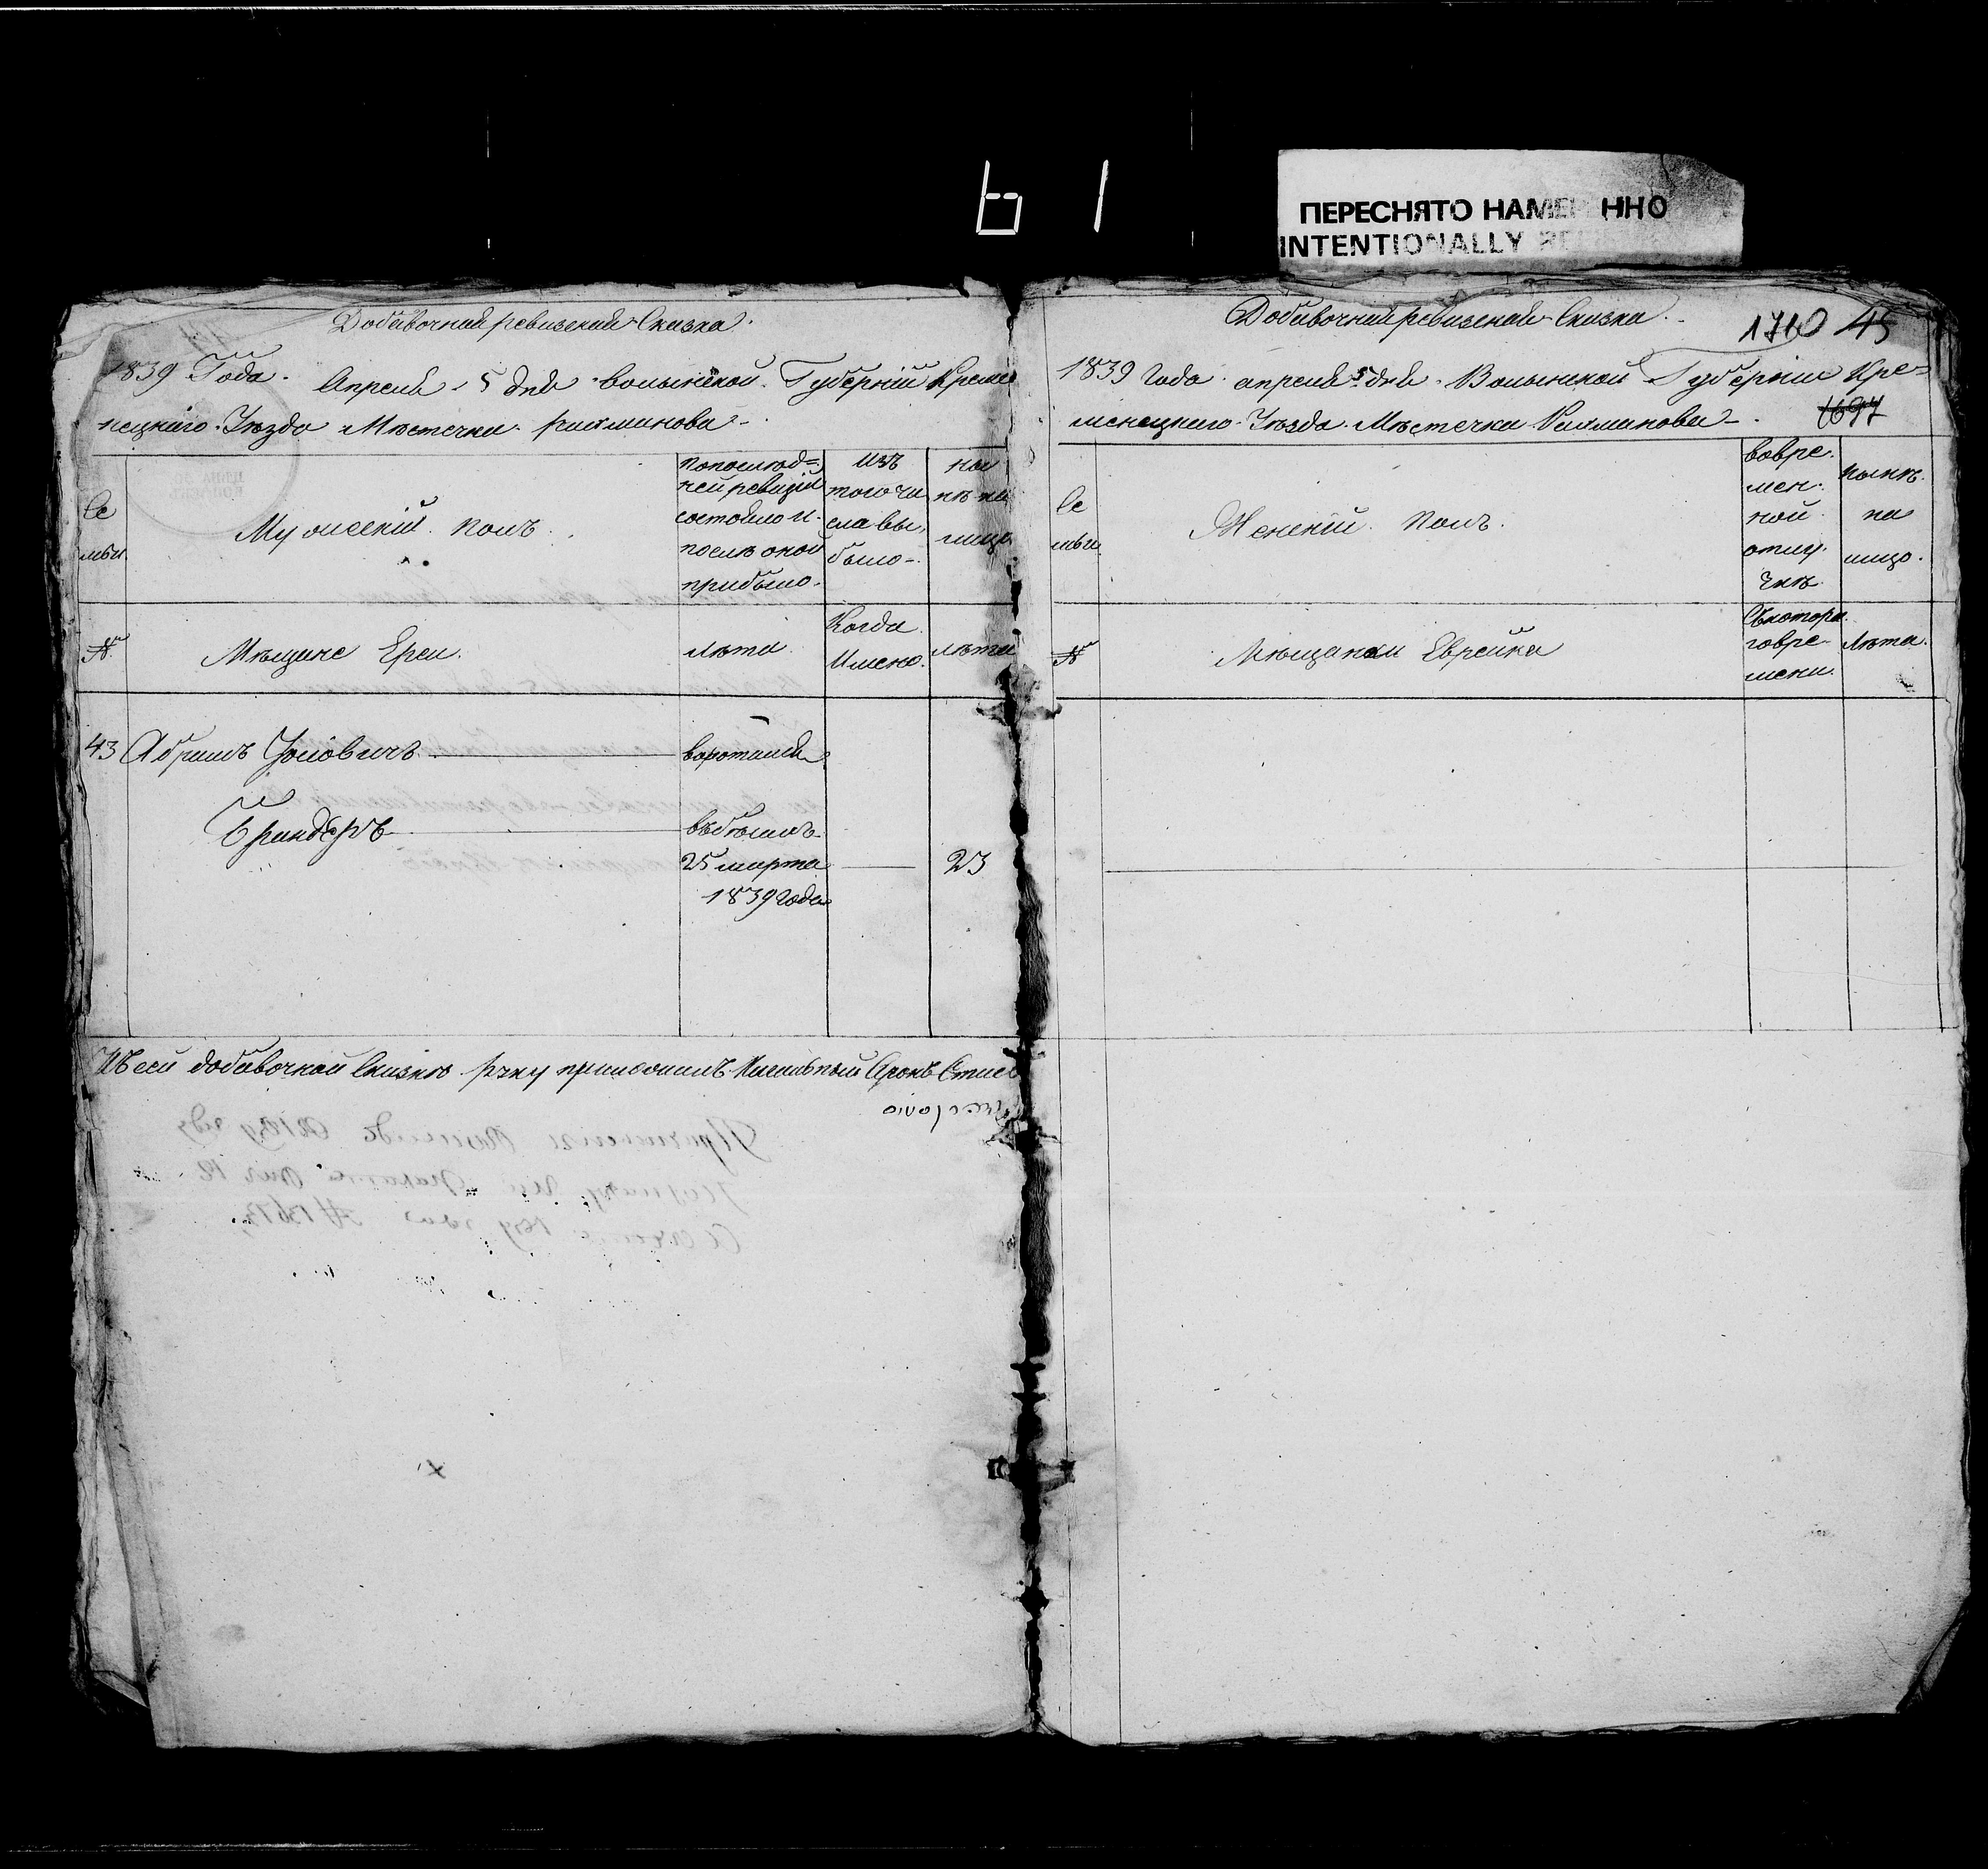 61
ПЕРЕСНЯТО НАМЕР ННО
INTENTIONALLY
Добавочная ревизская Сказка.
1839 Года. Апреля 5 дня Волынской Губерній Креме
нецкаго Уезда Мѣстечка рахманова
Се
мьи.
Мужескій полъ.
попослѣд=
ней ревизіи
состояло и
послѣ оной
прибыло.
Изъ
того чи
сла вы
было.
ны
нѣ на
лицо
№
Мѣщане Ереи.
лѣта.
Когда
Имено.
лѣта
43 Абрамъ Іосіовичъ
Бриндеръ
воротился
въ бѣгахъ
25 марта
1839 года
23
Къ сей добавочной Сказкѣ рчку приложилъ
Добавочная ревизская Сказка.
1760 45
1839 Года апреля 5 дня Волынской Губерніи Кре=
менецкаго Уезда Мѣстечка Рахманова
1697
Се
мьи
Женскій полъ.
вовре
мен
ной
отлу
чкѣ
нынѣ
на
лицо.
№
Мѣщанки Еврейки
Съ котора
говре
мени
Лѣта.